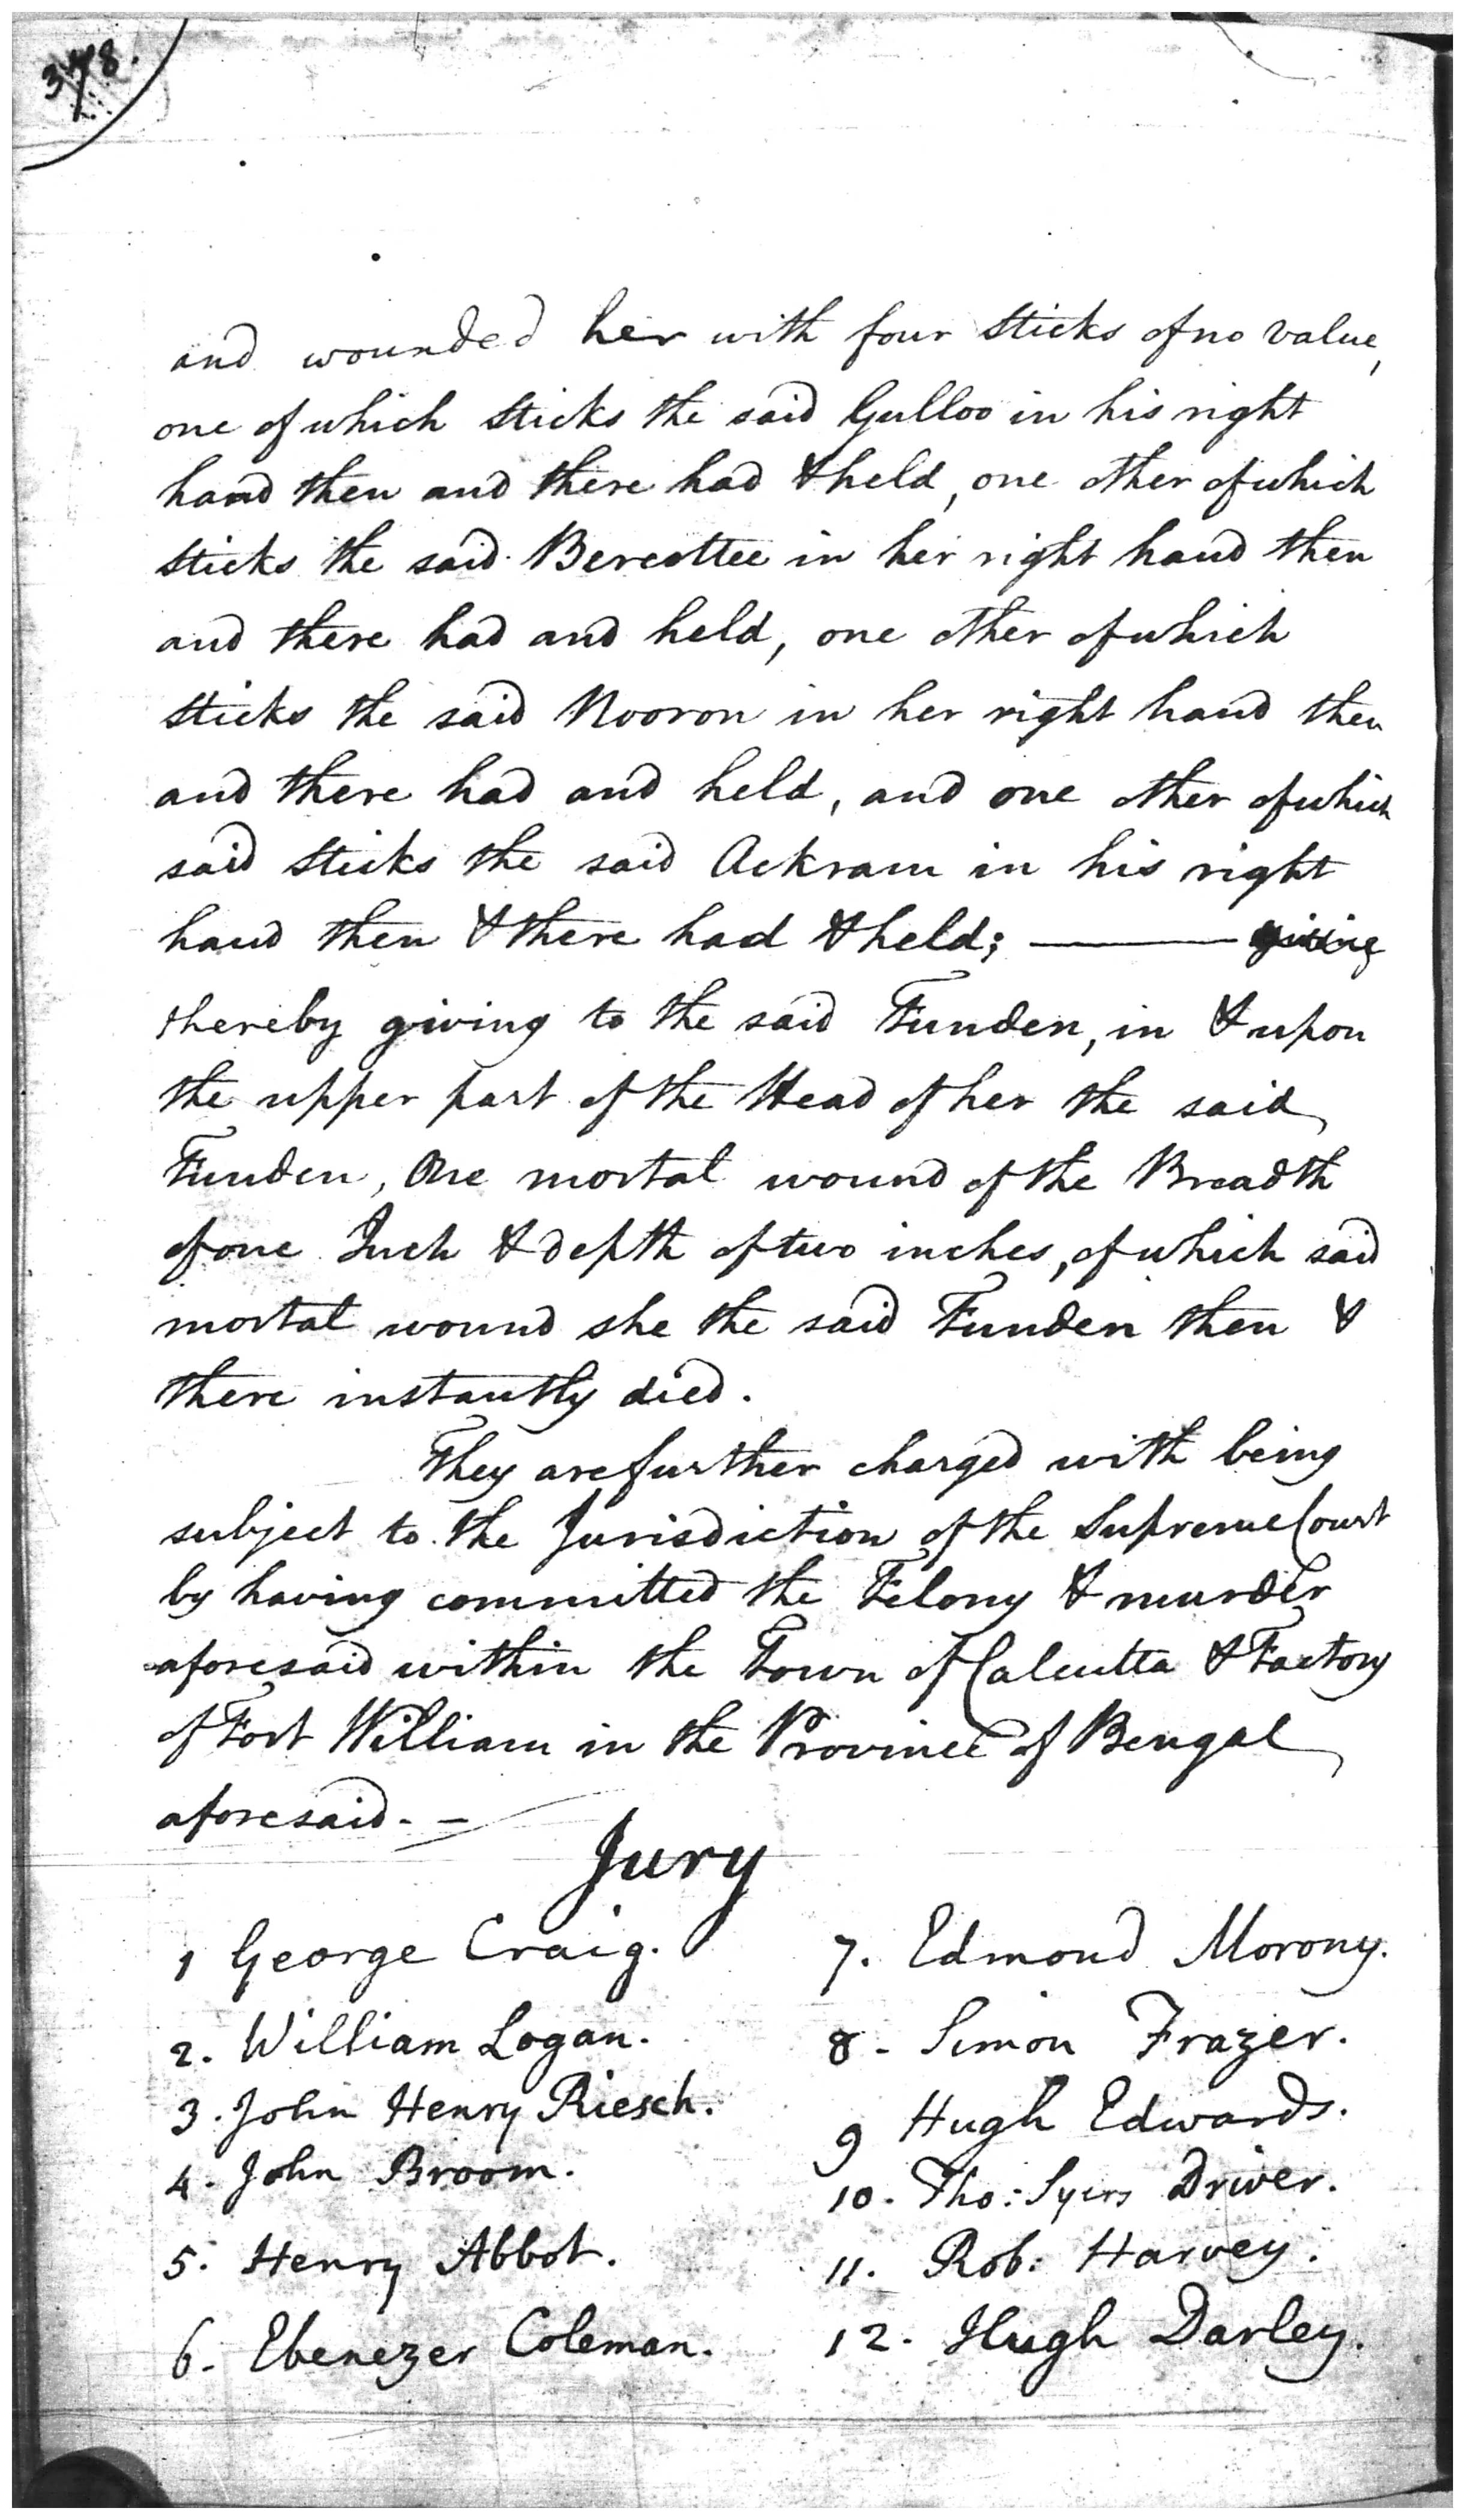 378.
and wounded her with four sticks of no value,
one of which sticks the said Gulloo in his right
hand then and there had & held, one other of which
sticks the said Bercottee in her right hand then
and there had and held, one other of which
sticks the said Nooron in her right hand then
and there had and held, and one other of which
said sticks the said Ackram in his right
hand then & there had & held; ——— giving
thereby giving to the said Funden, in & upon
the upper part of the Head of her the said
Funden, One mortal wound of the Breadth
of one Inch & depth of two inches, of which said
mortal wound she the said Funden then &
there instantly died.
They are further charged with being
subject to the Jurisdiction of the Supreme Court
by having committed the Felony & murder
aforesaid within the Town of Calcutta & Factory
of Fort William in the Province of Bengal
aforesaid. –
Jury
1 George Craig.
2. William Logan.
3. John Henry Riesch.
4. John Broom.
5. Henry Abbot.
6. Ebenezer Coleman.
7. Edmond Morony.
8 - Simon Frazer.
9 Hugh Edwards.
10. Tho: Syers Driver.
11. Rob: Harvey.
12. Hugh Darley.